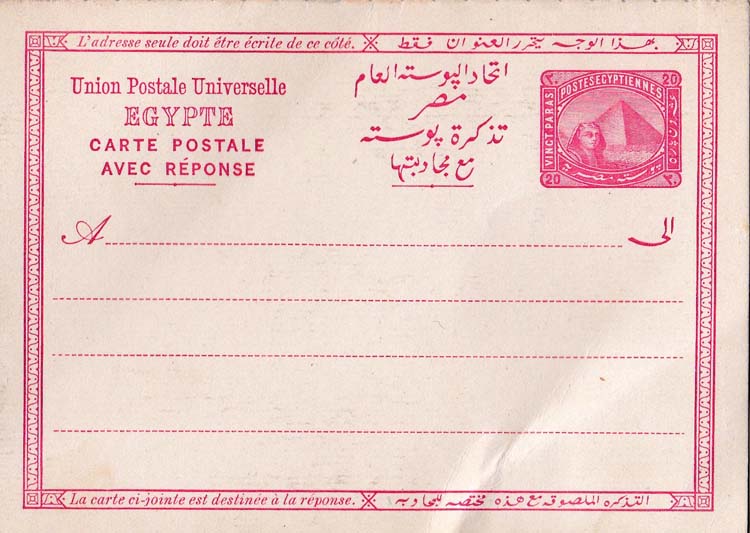 L'adresse seule doit être écrite de ce côté.
بهذا الوجه يتحرر العنوان فقط
Union Postale Universelle
EGYPTE
CARTE POSTALE
AVEC RÉPONSE
اتحاد البوسته العام
مصر
تذكرة بوسته
مع مجاوبتها
POSTES EGYPTIENNES
VINGT PARAS
20
٢٠
20
٢٠
بوسته مصر
A
الى
La carte ci-jointe est destinée à la réponse.
التذكره الملصوقه مع هذه مختصه للمجاوبه